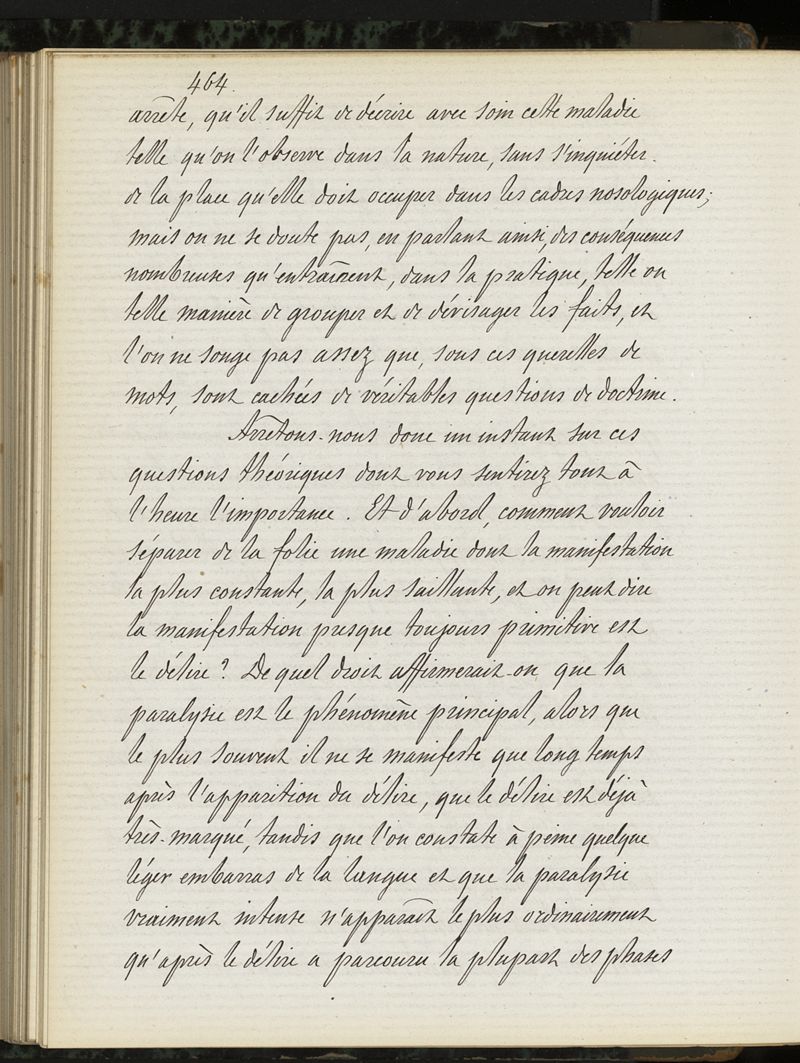 464.
arrête, qu'il suffit de décrire avec soin cette maladie
telle qu'on l'observe dans la nature, sans s'inquiéter.
de la place qu'elle doit occuper dans les cadres nosologiques;
mais on ne se doute pas, en parlant ainsi, des conséquences
nombreuses qu'entraînent, dans la pratique, telle ou
telle manière de grouper et de dévisager les faits, et
l'on ne songe pas assez que, sous ces querelles de
mots, sont cachées de véritables questions de doctrine.
Arrêtons-nous donc un instant sur ces
questions théoriques dont vous sentirez tout à
l'heure l'importance. Et d'abord, comment vouloir
séparer de la folie une maladie dont la manifestation
la plus constante, la plus saillante, et on peut dire
la manifestation presque toujours primitive est
le délire? De quel droit affirmerait-on que la
paralysie est le phénomène principal, alors que
le plus souvent il ne se manifeste que long temps
après l'apparition du délire, que le délire est déjà
très-marqué, tandis que l'on constate à peine quelque
léger embarras de la langue et que la paralysie
vraiment intense n'apparaît le plus ordinairement
qu'après le délire a parcouru la plupart des phases